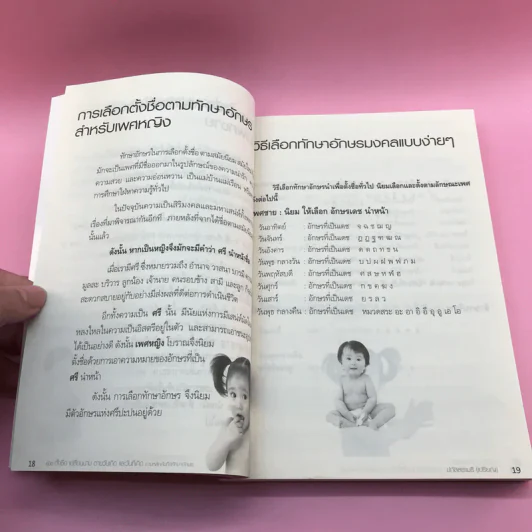 การเลือกตั้งชื่อตามทักษาอักษร
สำหรับเพศหญิง
ทักษาอักษรในการเลือกตั้งชื่อ ตามสมัยนิยม
มักจะเป็นเพศที่มีชื่อออกมาในรูปลักษณ์ของความงดงาม
ความสวย และความอ่อนหวาน เป็นแม่บ้านแม่เรือน
การศึกษาใฝ่หาความรู้ทั่วไป
ในปัจจุบันความเป็นสิริมงคลและมหาเสน่ห์
เรื่องที่มาพิจารณากันอีกที ภายหลังที่จากได้ชื่อตาม
นั้นแล้ว
ดังนั้น หากเป็นหญิงจึงมักจะมีคำว่า ศรี นำหน้าชื่อ
เมื่อเรามีศรี ซึ่งหมายรวมถึง อำนาจ วาสนา บารมี
มูลละ บริวาร ลูกน้อง เจ้านาย คนรอบข้าง สามี และลูก ก็
สะดวกสบายอยู่กับอย่างมีส่งผลที่ดีต่อการดำเนินชีวิต
อีกทั้งความเป็น ศรี นั้น มีนัยแห่งการมีเสน่ห์
หลงใหลในความเป็นอิสตรีอยู่ในตัว และสามารถเอาชนะ
ได้เป็นอย่างดี ดังนั้น เพศหญิง โบราณจึงนิยม
ตั้งชื่อด้วยการเอาความหมายของอักษรที่เป็น
ศรี นำหน้า
ดังนั้น การเลือกทักษาอักษร จึงนิยม
มีตัวอักษรแห่งศรีปะปนอยู่ด้วย
18
วิธีเลือกทักษาอักษรมงคลแบบง่ายๆ
วิธีเลือกทักษาอักษรนำเพื่อตั้งชื่อทั่วไป นิยมเลือกและตั้งตามลักษณะเพศ
ดังต่อไปนี้
เพศชาย : นิยม ให้เลือก อักษรเดช นำหน้า
วันอาทิตย์ : อักษรที่เป็นเดช จ ฉ ช ฌ ญ
วันจันทร์ : อักษรที่เป็นเดช ฎ ฏ ฐ ฑ ฒ ณ
วันอังคาร : อักษรที่เป็นเดช ด ต ถ ท ธ น
วันพุธ กลางวัน : อักษรที่เป็นเดช บ ป ผ ฝ พ ฟ ภ ม
วันพฤหัสบดี : อักษรที่เป็นเดช ศ ษ ส ห ฬ ฮ
วันศุกร์ : อักษรที่เป็นเดช ก ข ค ฆ ง
วันเสาร์ : อักษรที่เป็นเดช ย ร ล ว
วันพุธ กลางคืน : อักษรที่เป็นเดช หมวดสระ อะ อา อิ อี อุ อู เอ โอ
19